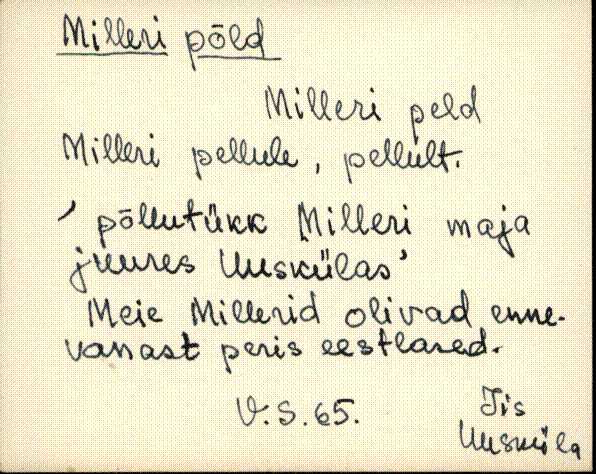 Milleri põld
Milleri peld
Milleri pellule, pellult.
‘põllutükk Milleri maja
juures Uuskülas’
Meie Millerid olivad enne-
vanast peris eestlased.
V.S. 65.
Jis
Uusküla